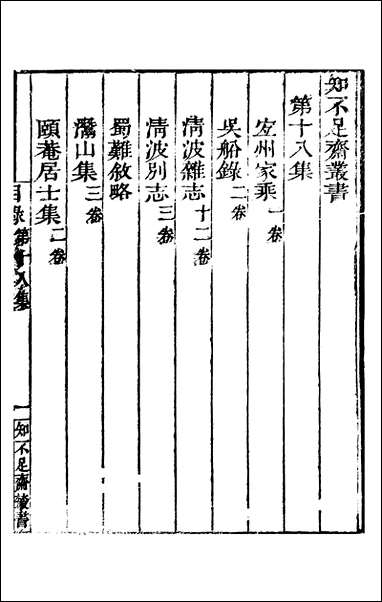 知不足齋叢書
第十八集
宜州家乘一卷
吳船錄二卷
清波雜志十二卷
清波別志三卷
蜀難敘略
灊山集三卷
頤菴居士集二卷
目錄第十八集
一
知不足齋叢書